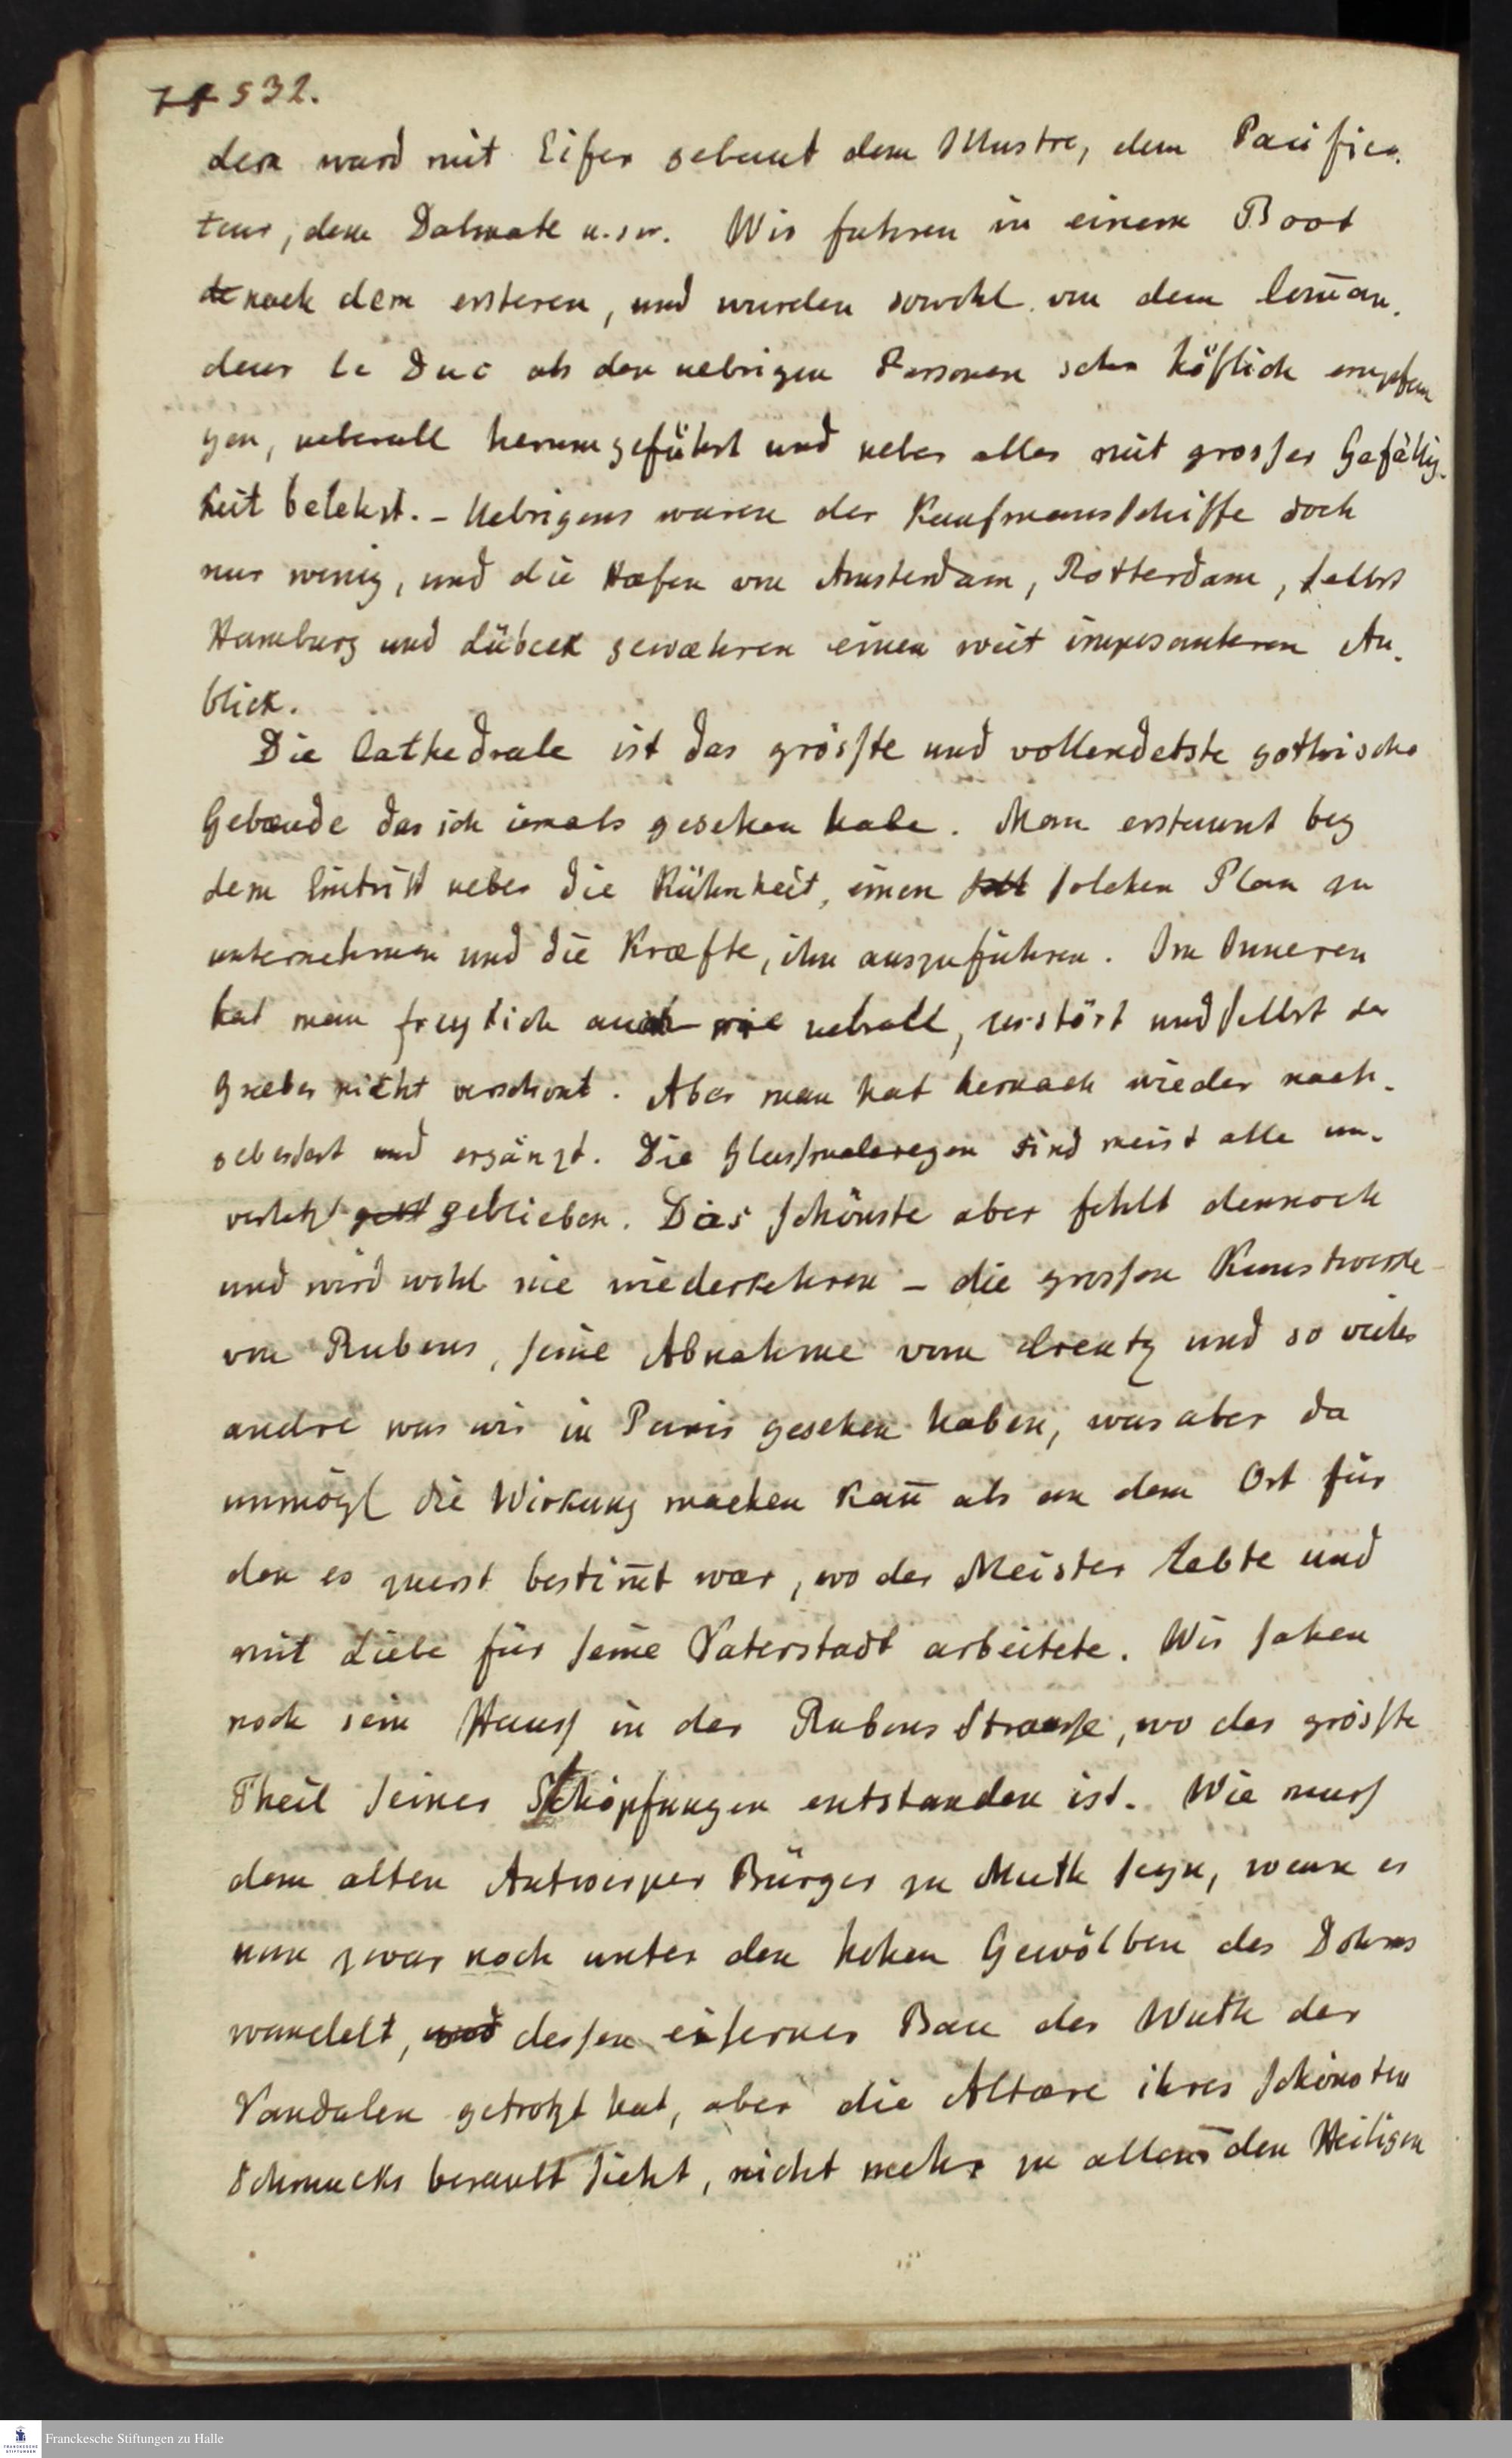 532.
den ward mit Eifer gebaut dem Illustre, dem Pacifica-
teur, dem Dalmate u.s.w. Wir fuhren in einem Boot
nach dem ersteren, und wurden sowohl von dem Com̄an-
deur Le Duc als den uebrigen Personen sehr höflich empfan
gen, ueberall herumgeführt und ueber alles mit grosser Gefällig-
keit belehrt. – Uebrigens waren der Kaufmannsschiffe doch
nur wenig, und die Hæfen von Amsterdam, Rotterdam, selbst
Hamburg und Lübeck gewæhren einen weit imposanteren An-
blick.
Die Cathedrale ist das grösste und vollendetste gothische
Gebæude das ich iemals gesehen habe. Man erstaunt bey
dem Eintritt ueber die Kühnheit, einen solchen Plan zu
unternehmen und die Kræfte, ihn auszuführen. Im Inneren
hat man freylich auch wie uebrall, zerstört und selbst der
Græber nicht verschont. Aber man hat hernach wieder nach-
gebessert und ergänzt. Die Glassmalereyen sind meist alle un-
verletzt geblieben. Das schönste aber fehlt dennoch
und wird wohl nie wiederkehren – die grossen Kunstwerke
von Rubens, seine Abnahme vom Creutz und so vieles
andre was wir in Paris gesehen haben, was aber da
unmögl die Wirkung machen kan̄ als an dem Ort für
den es zuerst bestim̄t war, wo der Meister lebte und
mit Liebe für seine Vaterstadt arbeitete. Wir sahen
noch sein Hauss in der Rubens Strasse, wo der grösste
Theil seiner Schöpfungen entstanden ist. Wie muss
dem alten Antwerper Bürger zu Muth seyn, wenn er
nun zwar noch unter den hohen Gewölben des Dohms
wandelt, dessen eiserner Bau der Wuth der
Vandalen getrotzt hat, aber die Altære ihres schönsten
Schmucks beraubt sieht, nicht mehr zu allen den Heiligen